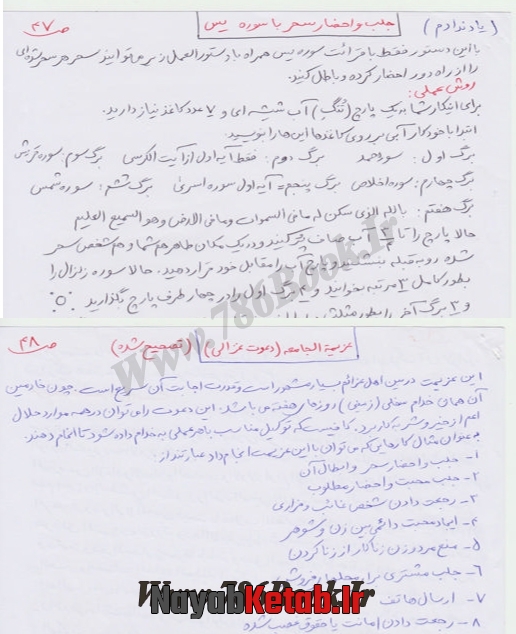 ص ۴۷
جلب و احضار سحر با سوره یس
(یادندادم)
با این دستور فقط با قرائت سوره یس همراه با دستورالعمل زیر می توانید سحر هر سحر شده ای
را از راه دور احضار کرده و باطل کنید.
روش عملی:
برای اینکار شما به یک پارچ (تُنگِ) آب شیشه ای و ۷ عدد کاغذ نیاز دارید.
ابتدا با خودکار آبی بر روی کاغذها این ها را بنویسید:
برگ اول: سوره حمد برگ دوم: فقط آیه اول از آیت الکرسی برگ سوم: سوره قریش
برگ چهارم: سوره اخلاص برگ پنجم: آیه اول سوره اسری برگ ششم: سوره شمس
برگ هفتم: بالله الذی سکن له مافی السموات و مافی الارض و هو السمیع العلیم
حالا پارچ را تا آب صاف پر کنید و در یک مکان طاهر هم شما و هم شخص سحر
شده رو به قبله بنشینید و پارچ آب را مقابل خود قرار دهید. حالا سوره زلزال را
بطور کامل ۳ مرتبه بخوانید و ۴ برگ اول را در چهار طرف پارچ بگذارید
و ۳ برگ آخر را بطور
Www.786Book.Ir
ص ۴۸
عزیمة الجامعه (دعوت غزالی)
(تصحیح شده)
این عزیمت در بین اهل عزائم بسیار مشهور است و قدرت اجابت آن سریع است. چون خادمین
آن همان خدام سفلی (زمینی) روزهای هفته می باشد. این دعوت را می توان در همه موارد حلال
اعم از خیر و شر به کار برد. کافیست که توکیل مناسب با هر عملی به خدام داده شود تا انجام دهند.
به عنوان مثال کارهایی که می توان با این عزیمت انجام داد عبارتند از:
۱- جلب و احضار سحر و ابطال آن
۲- جلب محبت و احضار مطلوب
۳- رجعت دادن شخص غائب و فراری
۴- ایجاد محبت دائمی بین زن و شوهر
۵- منع مرد و زن زناکار از زنا کردن
۶- جلب مشتری برای محلهای فروش
۷- ارسال هاتف
۸- رجعت دادن امانت یا حقوق غصب شده
Www.786Book.Ir
NayabKetab.Ir